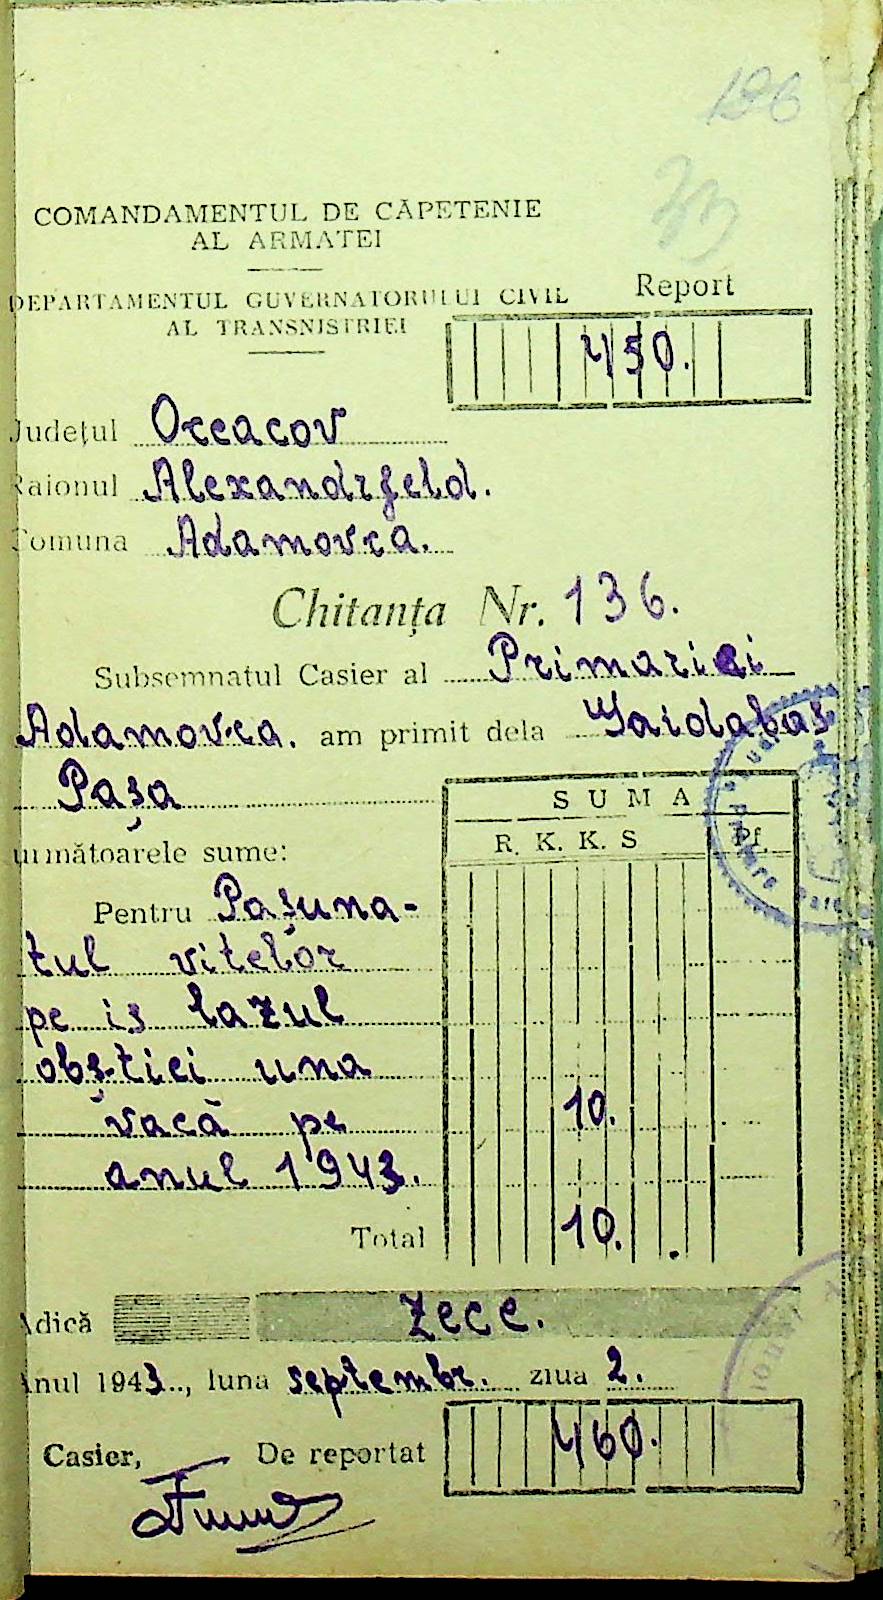 196
33
COMANDAMENTUL DE CĂPETENIE
AL ARMATEI
DEPARTAMENTUL GUVERNATORULUI CIVIL
AL TRANSNISTRIEI
Report
450.
Județul Oceacov
Raionul Alexandrfeld.
Comuna Adamovca.
Chitanța Nr. 136.
Subsemnatul Casier al Primariei
Adamovca. am primit dela Gaidabaș
Pașa
SUMA
R. K. K. S Pf.
următoarele sume:
Pentru Pașuna-
tul vitelor
pe is lazul
obștiei una
vacă pe 10.
anul 1943.
Total 10.
Adică zece.
Anul 1943.., luna septembr. ziua 2.
Casier, De reportat 460.